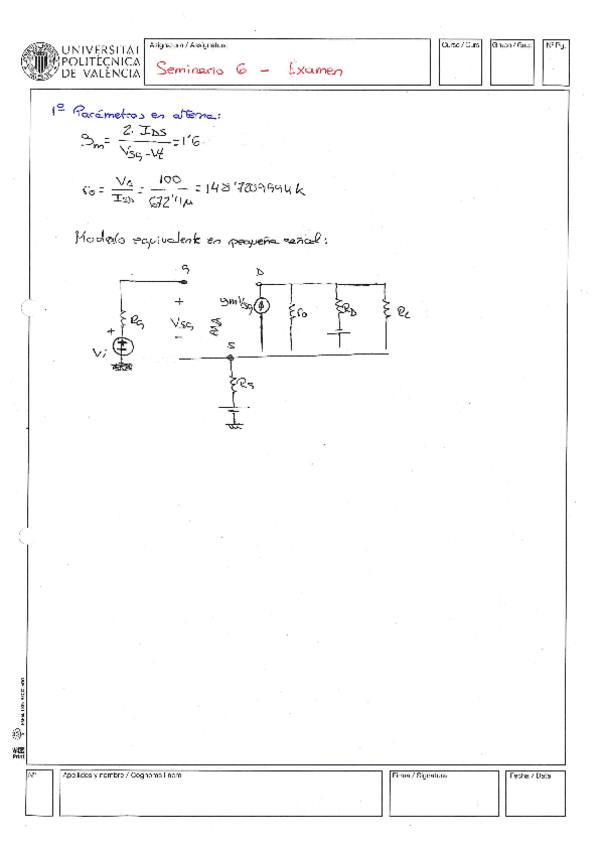 UNIVERSITAT
POLITÈCNICA
DE VALÈNCIA
Asignatura / Assignatura
Seminario 6 - Examen
Curso / Curs
Grupo / Grup
Nº Pg.
1º Parámetros en alterna:
gm = 2·IDS / VSG - Vt = 1'6
ro = VA / ISD = 100 / 672'4μ = 148'7209994 k
Modelo equivalente en pequeña señal:
G
D
+
gmVSG
RG
VSG
ro
RD
RL
+
-
Vi
S
RS
Nº
Apellidos y nombre / Cognoms i nom
Firma / Signatura
Fecha / Data